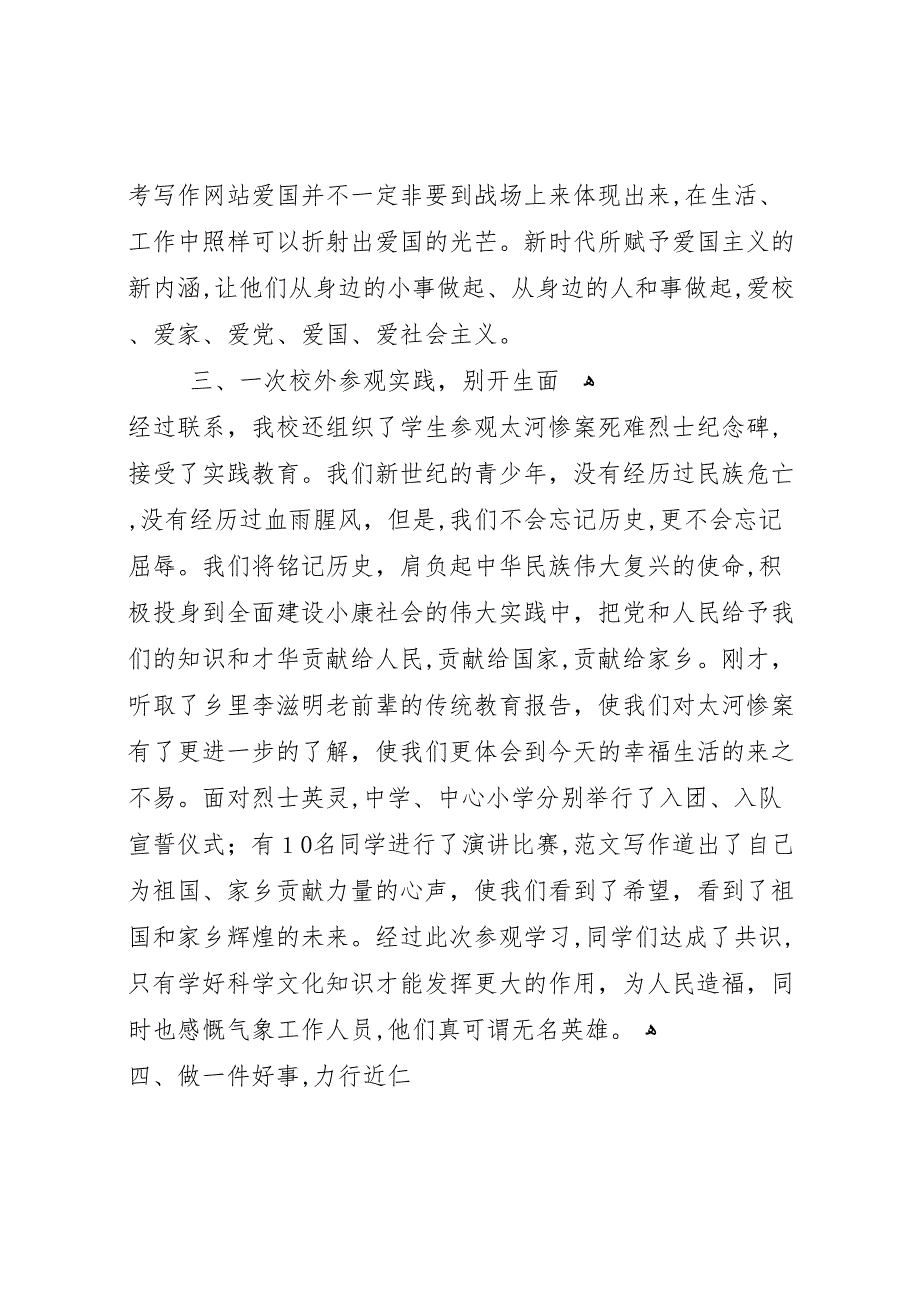 考写作网站爱国并不一定非要到战场上来体现出来,在生活、
工作中照样可以折射出爱国的光芒。新时代所赋予爱国主义的
新内涵,让他们从身边的小事做起、从身边的人和事做起,爱校
、爱家、爱党、爱国、爱社会主义。
三、一次校外参观实践，别开生面 ﻫ
经过联系，我校还组织了学生参观太河惨案死难烈士纪念碑,
接受了实践教育。我们新世纪的青少年，没有经历过民族危亡
,没有经历过血雨腥风，但是,我们不会忘记历史,更不会忘记
屈辱。我们将铭记历史，肩负起中华民族伟大复兴的使命,积
极投身到全面建设小康社会的伟大实践中，把党和人民给予我
们的知识和才华贡献给人民,贡献给国家,贡献给家乡。刚才，
听取了乡里李滋明老前辈的传统教育报告，使我们对太河惨案
有了更进一步的了解，使我们更体会到今天的幸福生活的来之
不易。面对烈士英灵,中学、中心小学分别举行了入团、入队
宣誓仪式；有10名同学进行了演讲比赛,范文写作道出了自己
为祖国、家乡贡献力量的心声，使我们看到了希望，看到了祖
国和家乡辉煌的未来。经过此次参观学习,同学们达成了共识,
只有学好科学文化知识才能发挥更大的作用，为人民造福，同
时也感慨气象工作人员,他们真可谓无名英雄。ﻫ
四、做一件好事,力行近仁